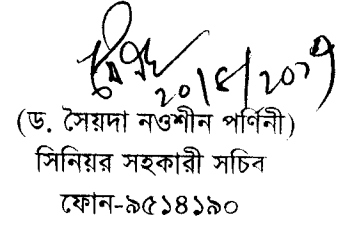 ২০/৪/২০১৭
(ড. সৈয়দা নওশীন পর্ণিনী)
সিনিয়র সহকারী সচিব
ফোন-৯৫১৪১৯০